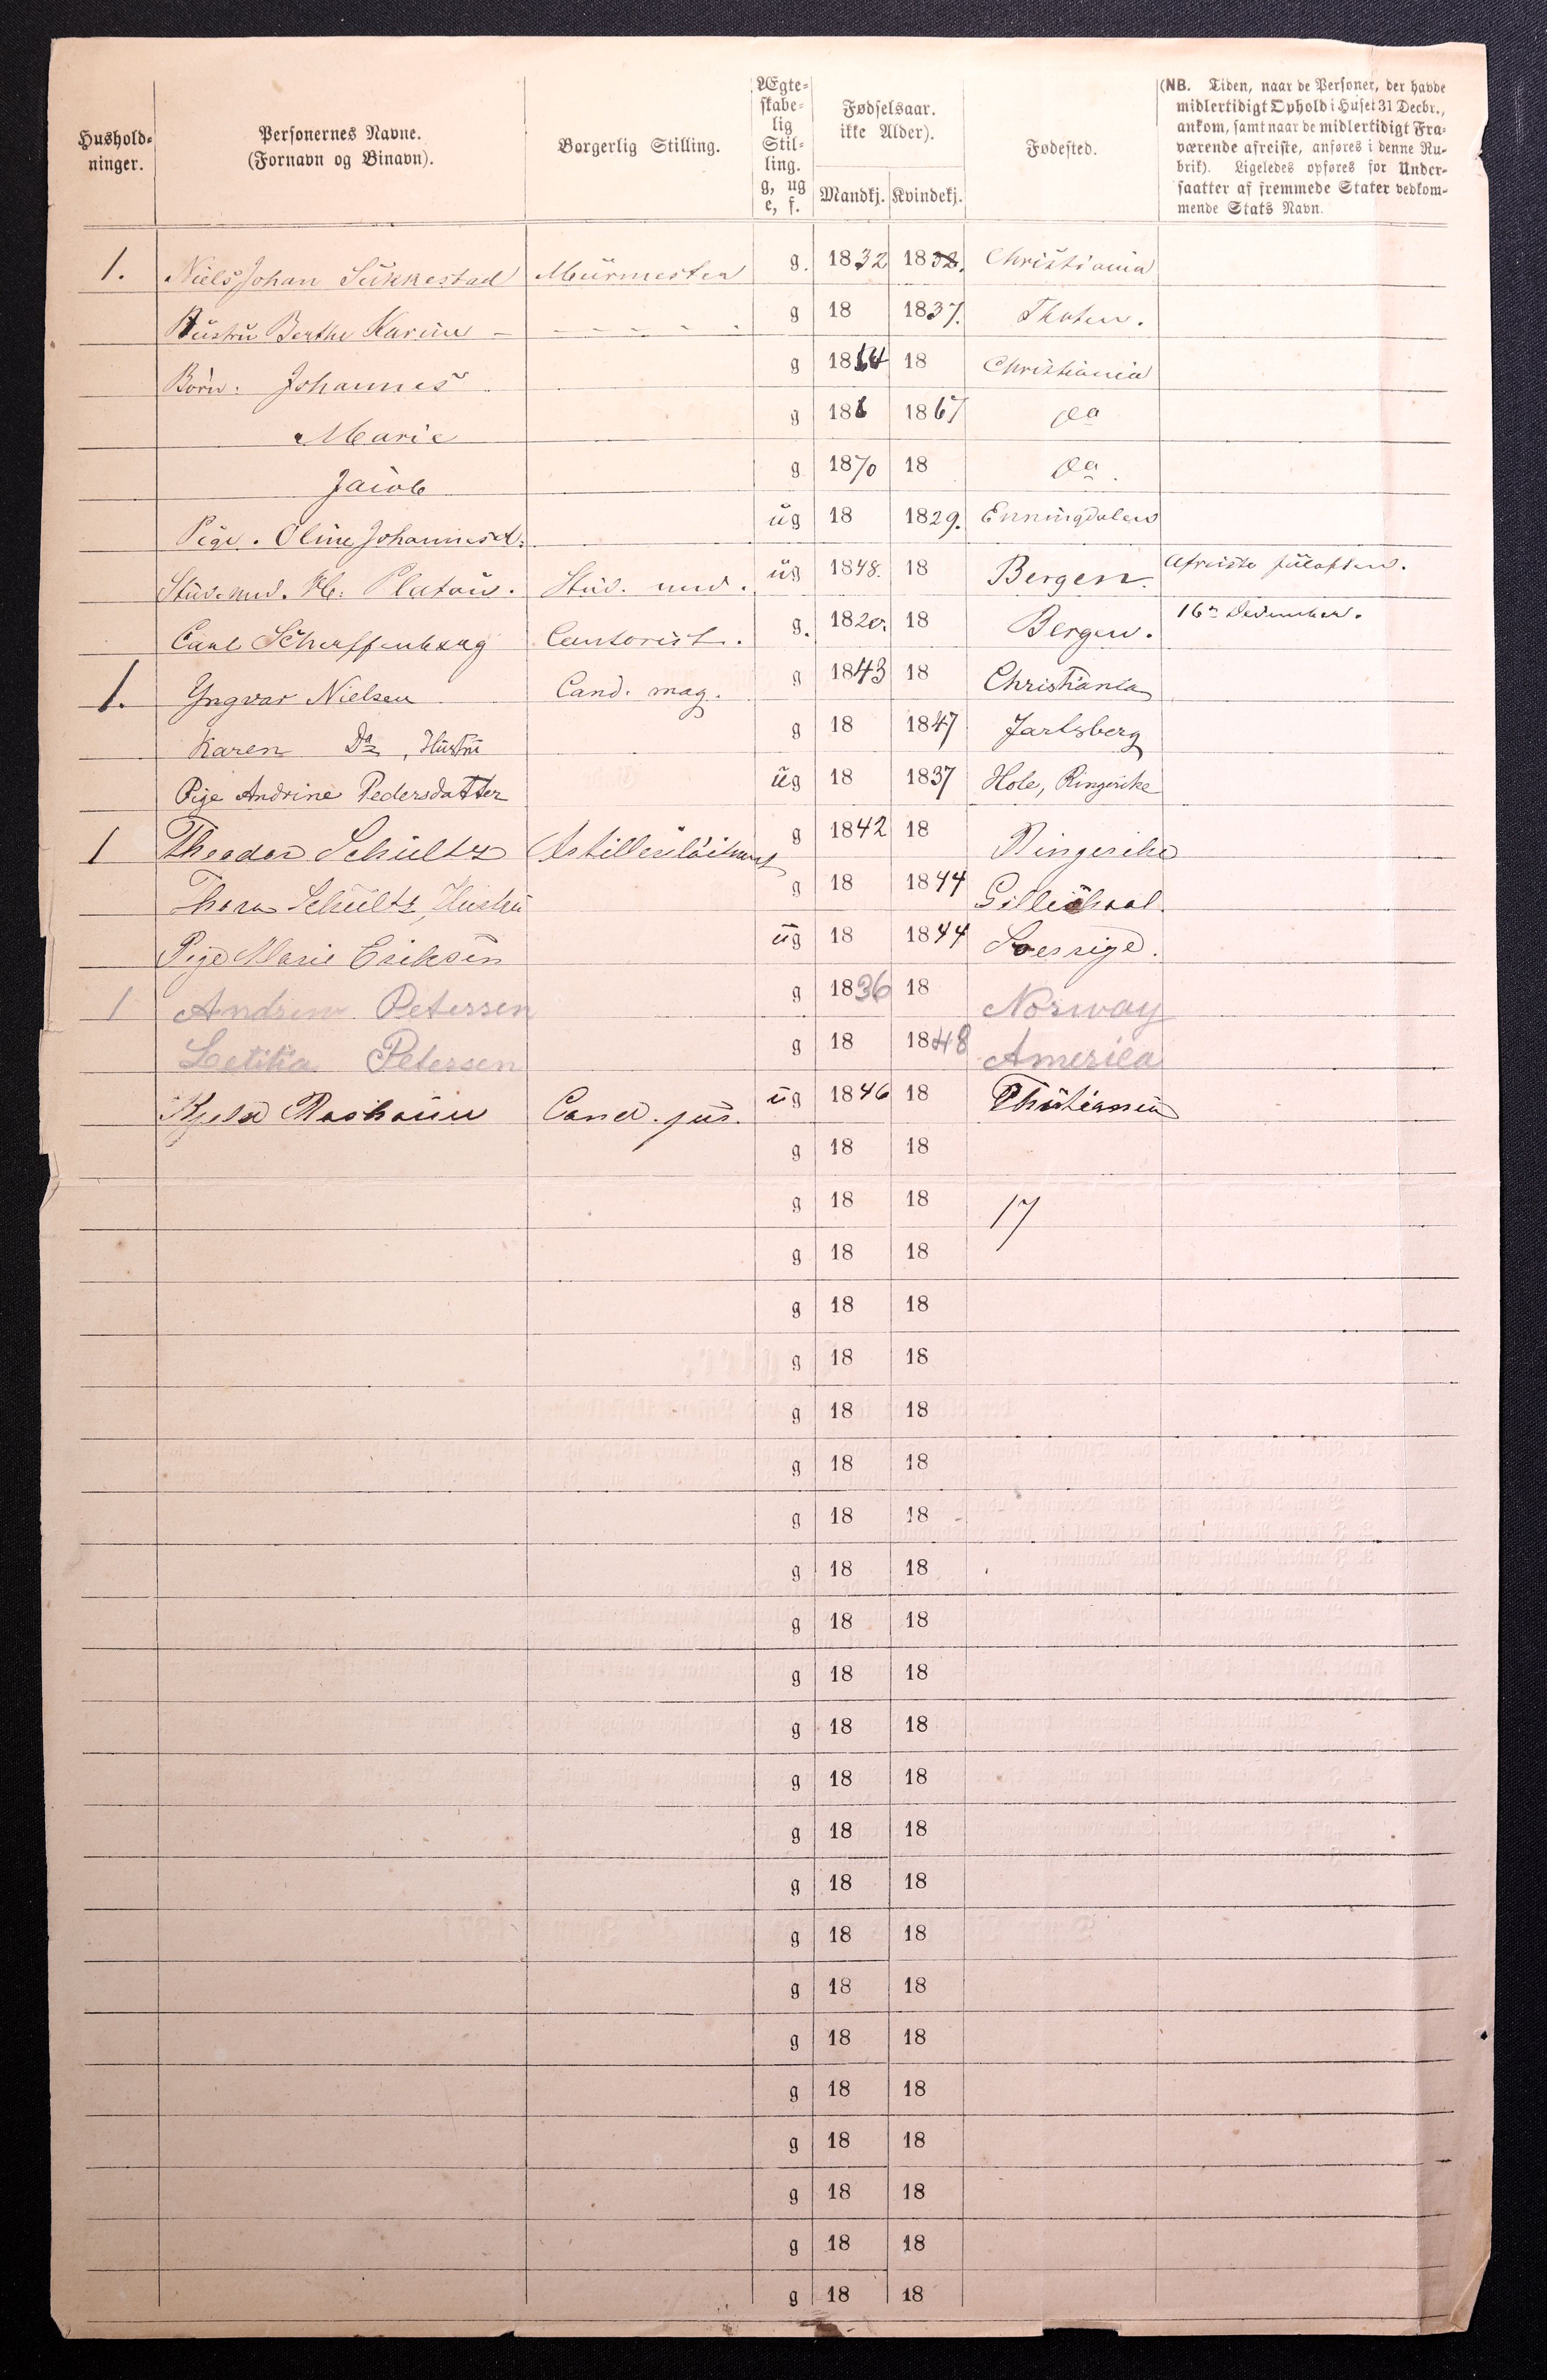 Hushold-
ninger.
Personernes Navne.
(Fornavn og Binavn).
Borgerlig Stilling.
Ægte-
skabe-
lig
Stil-
ling.
g, ug
e, f.
Fødselsaar.
ikke Alder).
Mandkj. Kvindekj.
Fødested.
(NB. Tiden, naar de Personer, der havde
midlertidigt Ophold i Huset 31 Decbr.,
ankom, samt naar de midlertidigt Fra-
værende afreiste, anføres i denne Ru-
brik). Ligeledes opføres for Under-
saatter af fremmede Stater vedkom-
mende Stats Navn.
1. Niels Johan Sukkestad Muurmester g. 1832 18 Christiania
Hustru Berthe Karine g 18 1837. Thoten.
Børn: Johannes g 1864 18 Christiania
Marie g 186 1867 Do
Jacob g 1870 18 Do.
Pige. Oline Johannesd. ug 18 1829. Enningdalen
Stud. med. Platou. Stud. med. ug 1848. 18 Bergen. Afreiste juleaften.
Carl Scharffenberg Contorist. g. 1820. 18 Bergen. 16de December.
1. Yngvar Nielsen Cand. mag. g 1843 18 Christiania
Karen Do, Hustru g 18 1847 Jarlsberg
Pige Andrine Pedersdatter ug 18 1837 Hole, Ringerike
1 Theodor Schultz g 1842 18 Ringerike
Thora Schultz, Hustru g 18 1844
Pige Marie Eriksen ug 18 1844 Sverrige.
1 Andrew Petersen g 1836 18 Norway
Letitia Petersen g 18 1848 America
Kjeld Cand. jur. ug 1846 18 Christiania
g 18 18
g 18 18 17
g 18 18
g 18 18
g 18 18
g 18 18
g 18 18
g 18 18
g 18 18
g 18 18
g 18 18
g 18 18
g 18 18
g 18 18
g 18 18
g 18 18
g 18 18
g 18 18
g 18 18
g 18 18
g 18 18
g 18 18
g 18 18